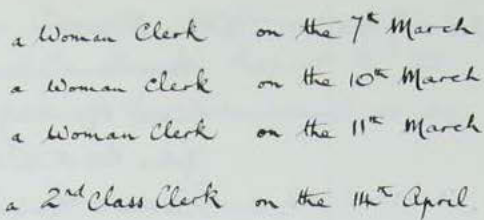 a Woman Clerk on the 7th March
a Woman Clerk on the 10th March
a Woman Clerk on the 11th March
a 2nd Class Clerk on the 14th April